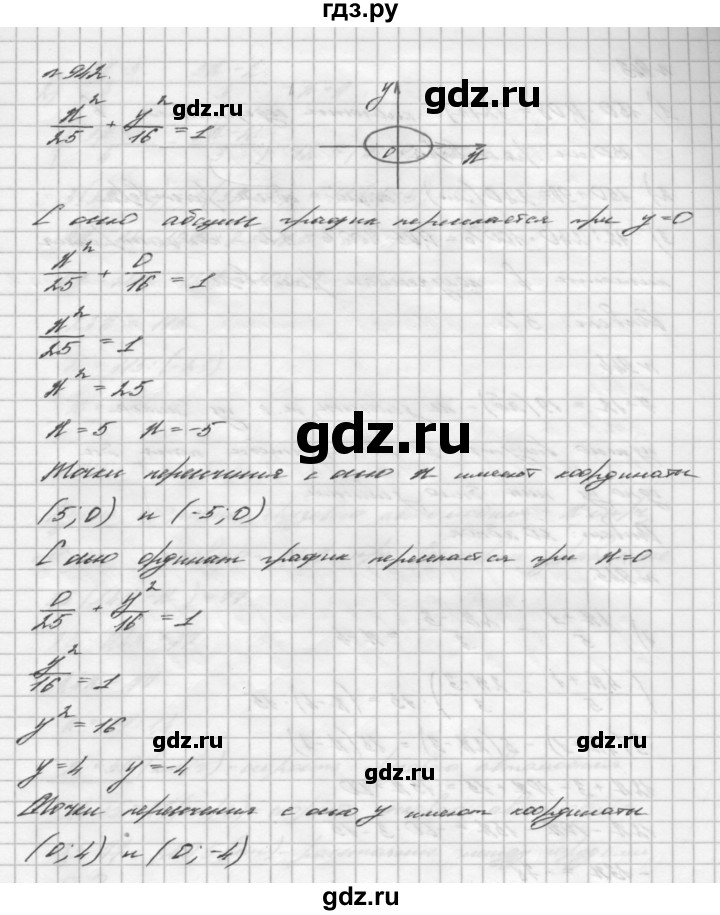 гдз.ру
№ 942.
x²/25 + y²/16 = 1
gdz.ru
y
gdz.ru
0
x
С осью абсцисс график пересекается при y=0
x²/25 + 0/16 = 1
gdz.ru
x²/25 = 1
x² = 25
x = 5 x = -5
gdz.ru
Точки пересечения с осью x имеют координаты
(5; 0) и (-5; 0)
С осью ординат график пересекается при x=0
0/25 + y²/16 = 1
y²/16 = 1
y² = 16
gdz.ru
gdz.ru
y = 4 y = -4
gdz.ru
Точки пересечения с осью y имеют координаты
(0; 4) и (0; -4)
gdz.ru